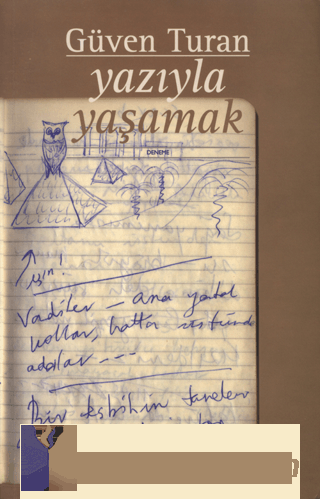 Güven Turan
yazıyla
yaşamak
DENEME
Vadiler — ana yatak
kollar, hatta üstünde
adalar ---
Bir tesbihin taneleri